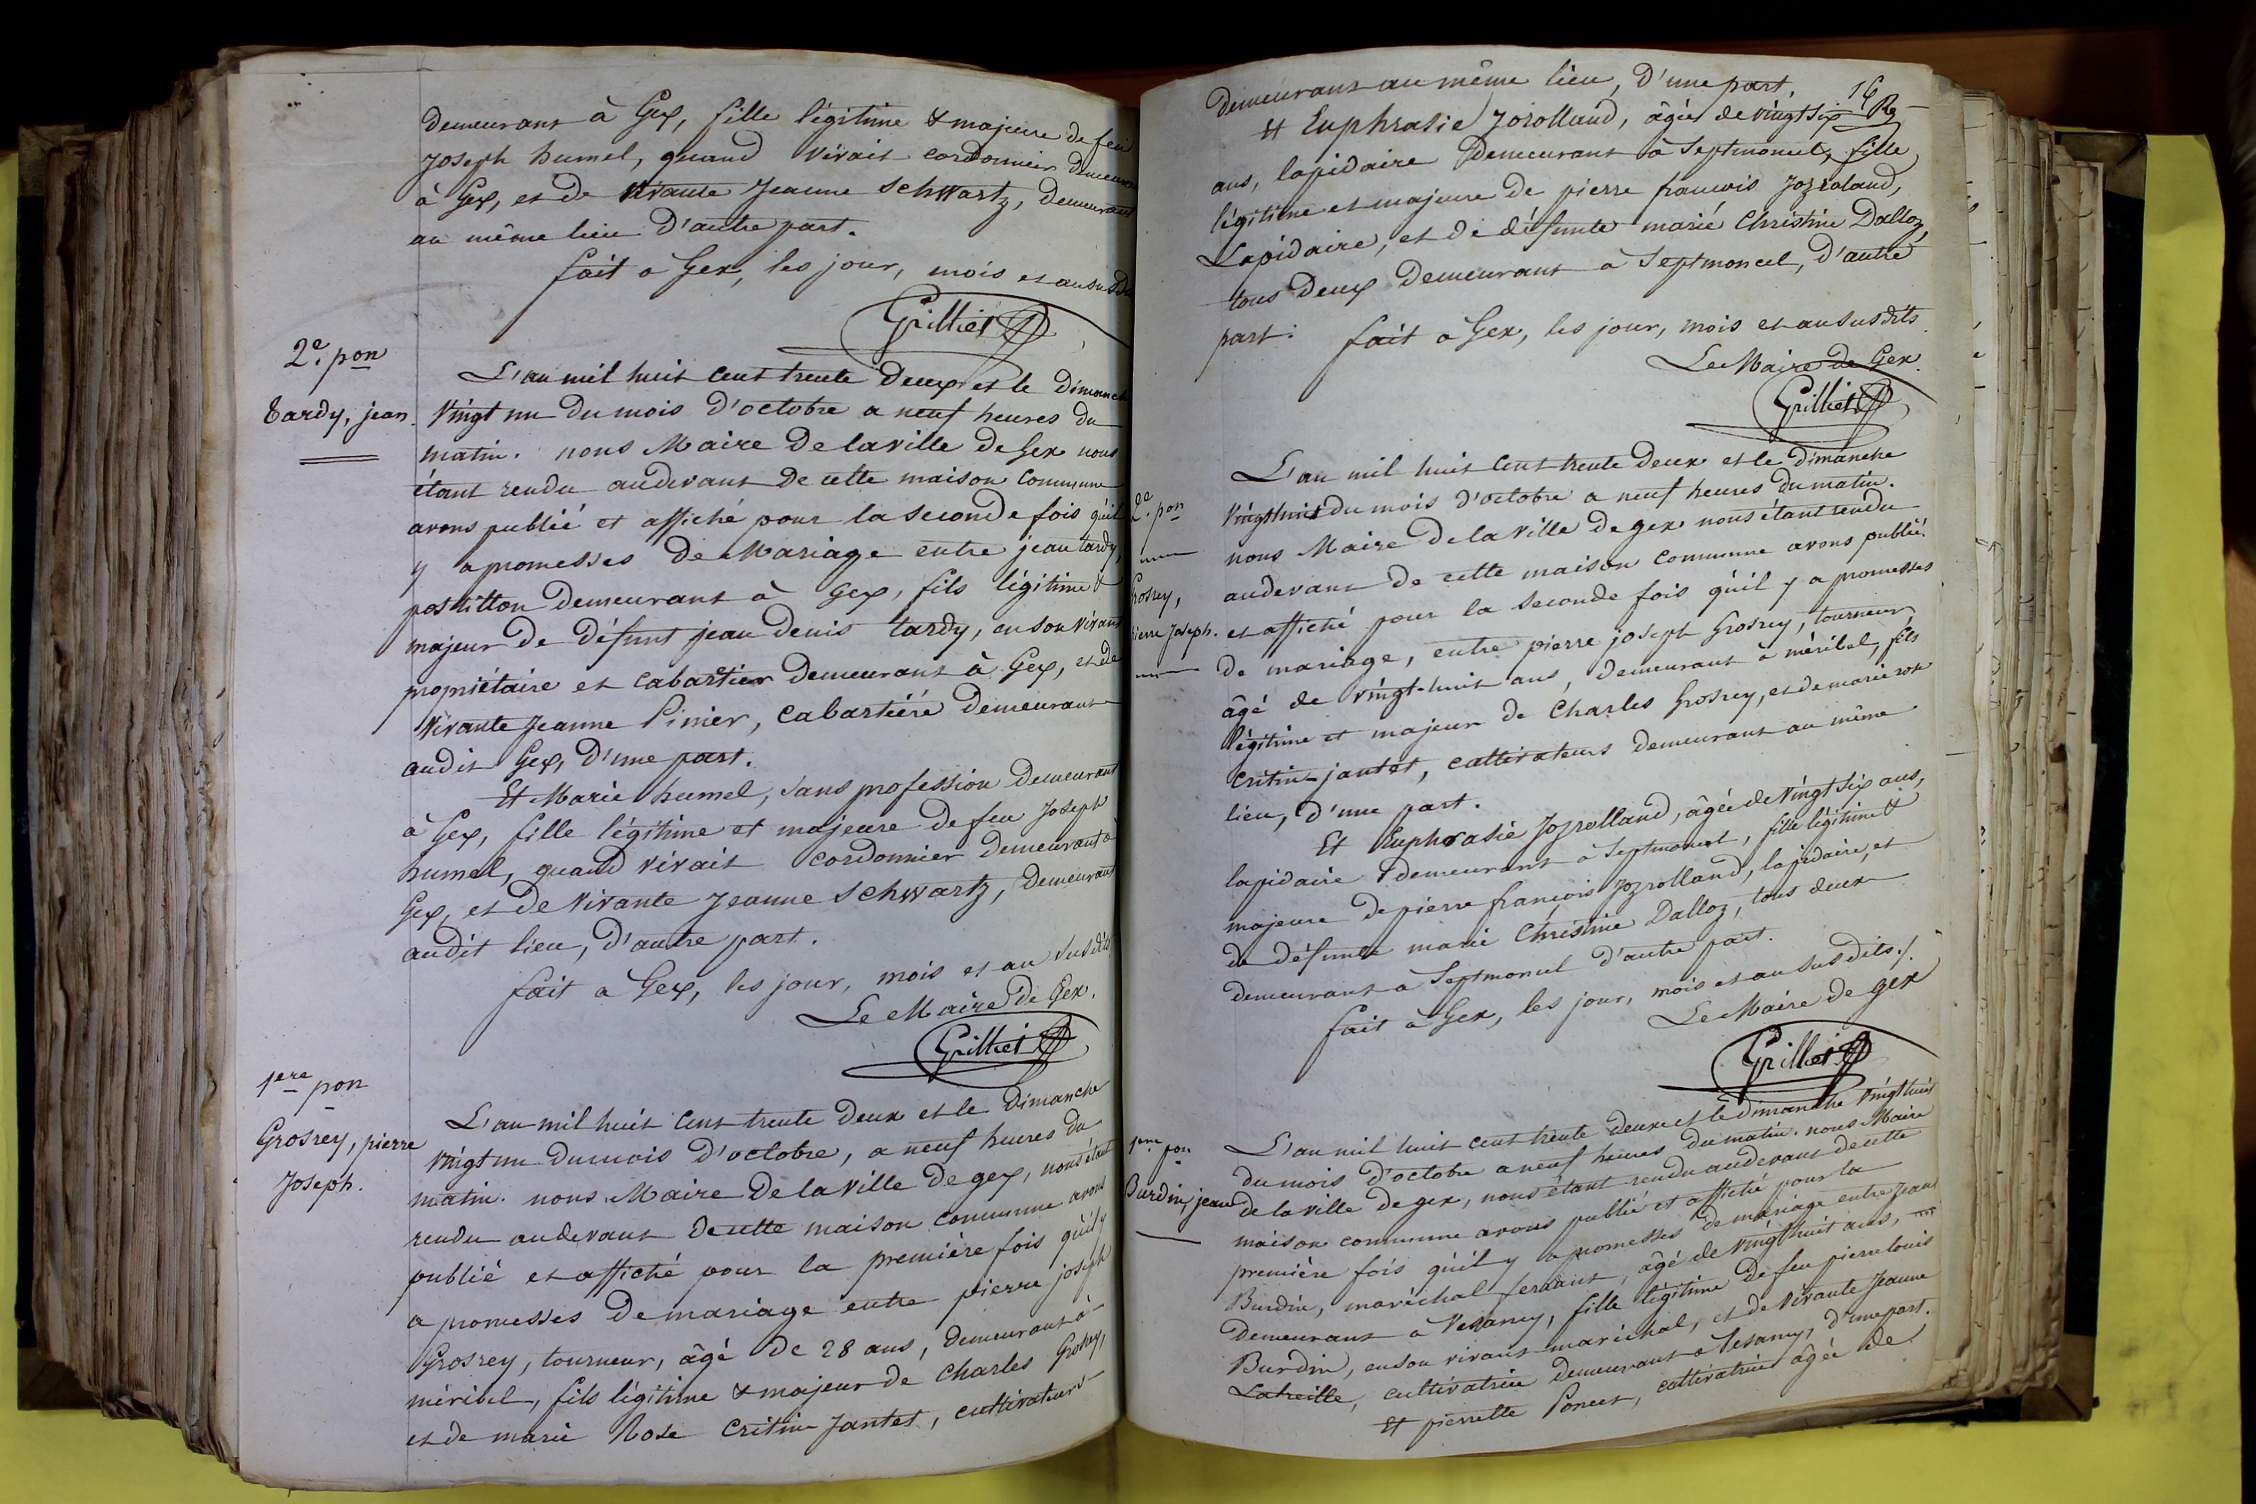 demeurant à Gex, fille légitime & majeure de feu
Joseph humel, quand vivait cordonnier demeurant
à Gex, et de vivante Jeanne Schwartz, demeurant
au même lieu d'autre part.
fait a Gex, les jour, mois et an susdits
Grilliet
2e. pon
Tardy, jean.
L'an mil huit cent trente deux et le dimanche
vingt un du mois d'octobre a neuf heures du
matin. nous Maire de la ville de Gex nous
étant rendu audevant de cette maison commune
avons publié et affiché pour la seconde fois qu'il
y a promesses de Mariage entre jean tardy,
postillon demeurant à Gex, fils légitime &
majeur de défunt jean denis tardy, en son vivant
propriétaire et cabartier demeurant à Gex, et de
vivante Jeanne Pinier, cabartiére demeurant
audit Gex, d'une part.
Et Marie humel, sans profession demeurant
à Gex, fille légitime et majeure de feu Joseph
humel, quand vivait cordonnier demeurant à
Gex, et de vivante Jeanne Schwartz, demeurant
audit lieu, d'autre part.
fait a Gex, les jour, mois et an susdits
Le Maire de Gex.
Grilliet
1ere pon
Grosrey, pierre
Joseph.
L'an mil huit cent trente deux et le dimanche
vingt un du mois d'octobre, a neuf heures du
matin. nous Maire de la ville de gex, nous étant
rendu audevant de cette maison commune avons
publié et affiché pour la première fois qu'il y
a promesses de mariage entre pierre joseph
Grosrey, tourneur, âgé de 28 ans, demeurant à
méribel, fils légitime & majeur de Charles Grosrey,
et de marie Rose Critin Jantet, cultivateurs
demeurant au même lieu, d'une part.
16
Et Euphrasie Jozolland, âgée de vingt six
ans, lapidaire demeurant à Septmoncel, fille
légitime et majeure de pierre francois Jozroland,
Lapidaire, et de défunte marié Christine Dalloz,
tous deux demeurant a Septmoncel, d'autre
part: fait a Gex, les jour, mois et an susdits
Le Maire de Gex.
Grilliet
2e. pon
Grosrey,
pierre Joseph.
L'an mil huit cent trente deux et le dimanche
vingthuit du mois d'octobre a neuf heures du matin.
nous Maire de la ville de gex nous étant rendu
audevant de cette maison commune avons publié
et affiché pour la seconde fois qu'il y a promesses
de mariage, entre pierre joseph Grosrey, tourneur,
âgé de vingt-huit ans, demeurant à méribel, fils
légitime et majeur de Charles Grosrey, et de marie rose
critin-jantet, cultivateurs demeurant au même
lieu, d'une part.
Et Euphrasie Jozrolland, âgée de vingt six ans,
lapidaire demeurant à Septmoncel, fille légitime &
majeure de pierre françois Jozrolland, lapidaire, et
de défunte marie Christine Dalloz, tous deux
demeurant a Septmoncel d'autre part.
fait à Gex, les jour, mois et an susdits./.
Le Maire de gex
Grilliet
1ere pon
Burdin, jean
L'an mil huit cent trente deux et le dimanche vingthuit
du mois d'octobre a neuf heures du matin. nous Maire
de la ville de gex, nous étant rendu audevant de cette
maison commune avons publié et affiché pour la
première fois qu'il y a promesses de mariage entre Jean
Burdin, maréchal ferrant, âgé de vingthuit ans,
demeurant à Vesancy, fille légitime de feu pierre louis
Burdin, en son vivant maréchal, et de vivante Jeanne
Latreille, cultivatrice demeurant a Vesancy, d'une part.
Et pierrette Poncet, cultivatrice âgée de